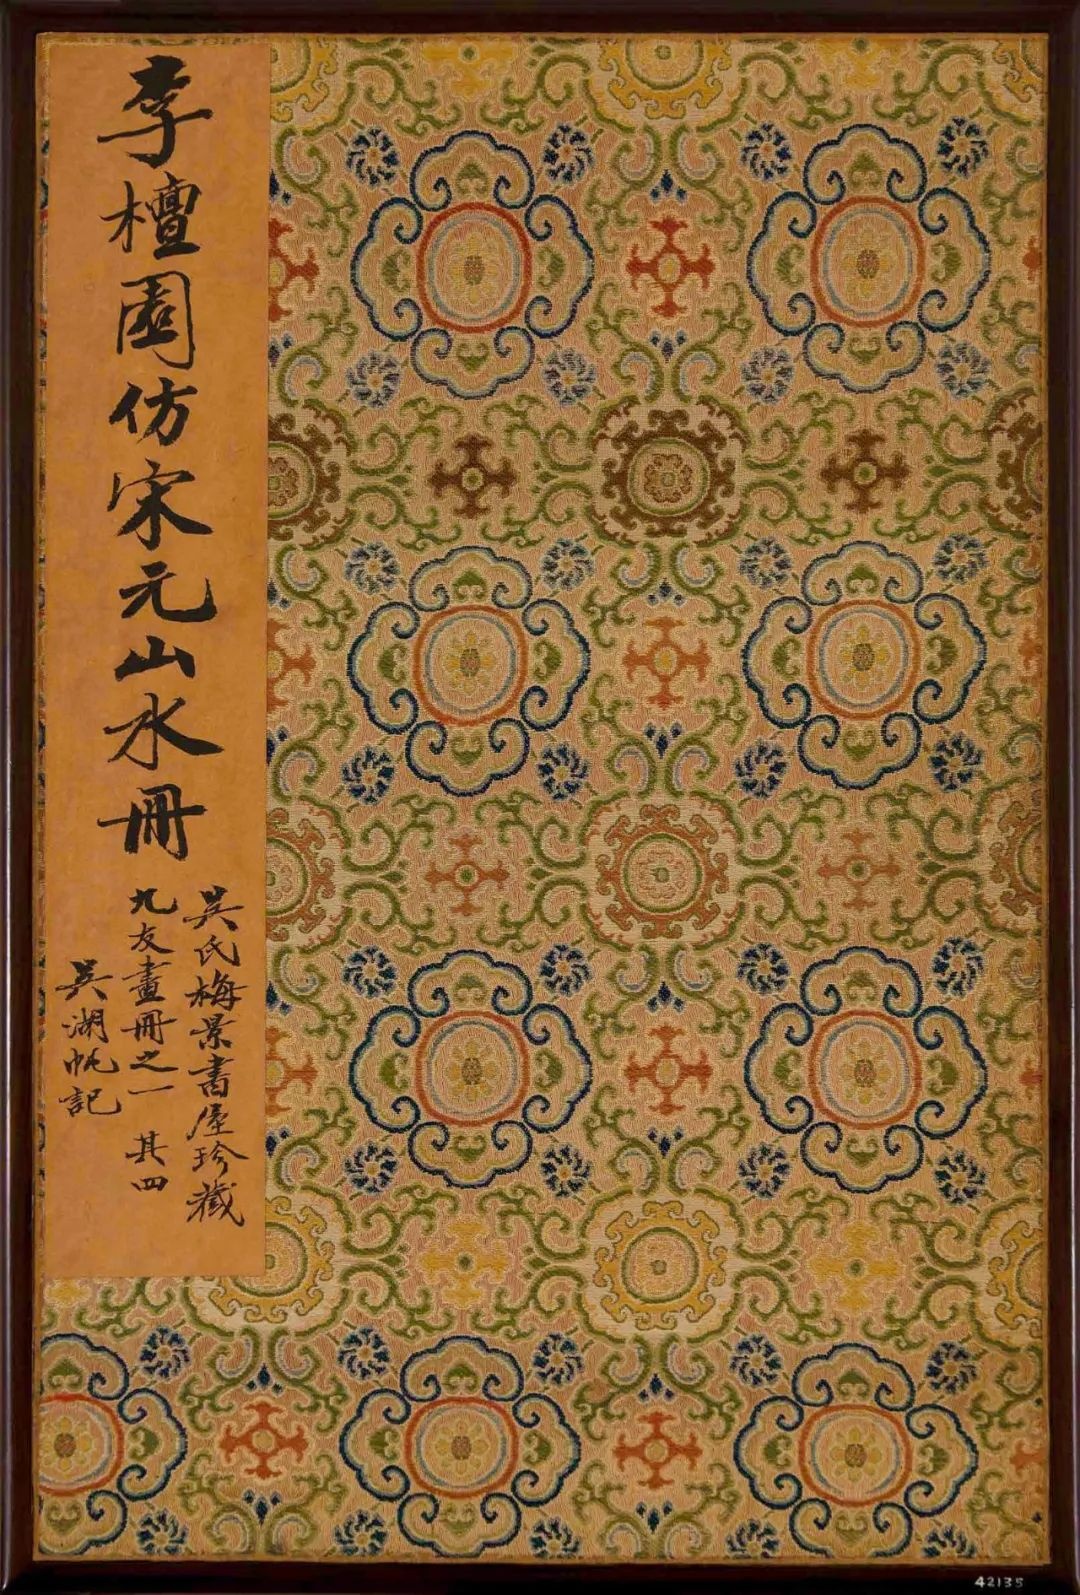 李檀園仿宋元山水冊
吴氏梅景書屋珍藏
九友畫冊之一 其四
吴湖帆記
42135